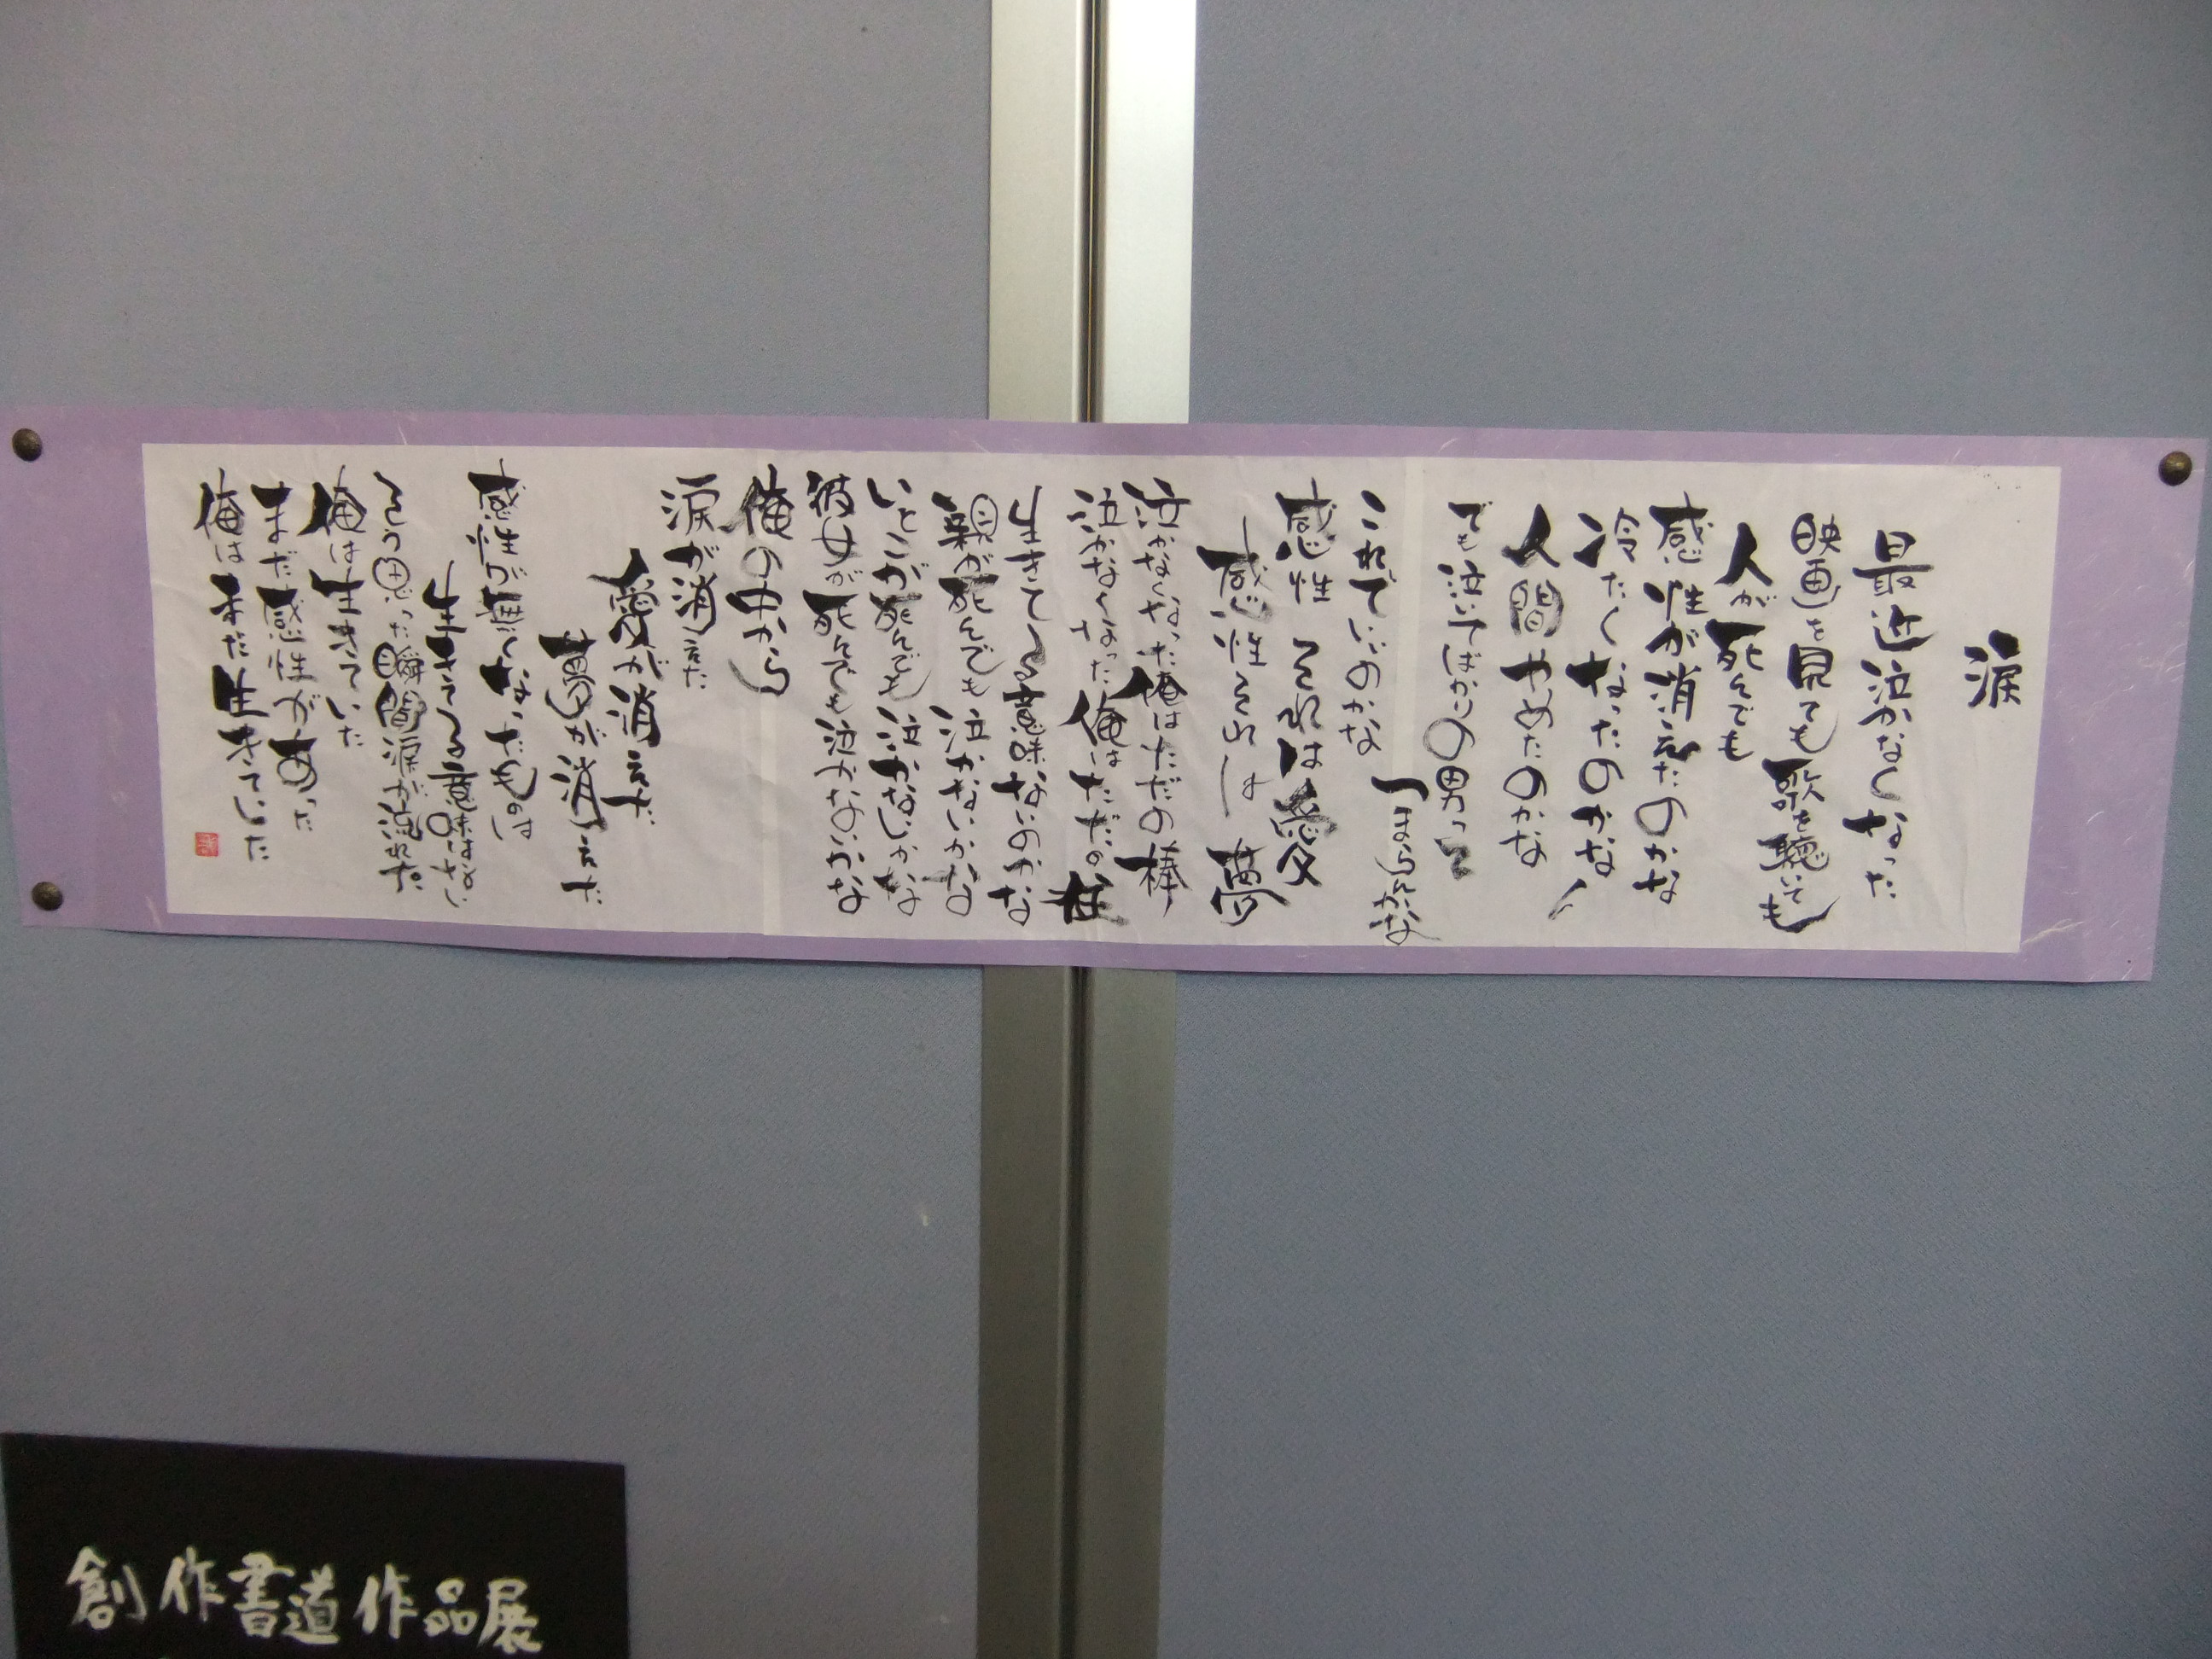 涙
最近泣かなくなった
映画を見ても歌を聴いても
人が死んでも
感性が消えたのかな
冷たくなったのかな
人間やめたのかな
でも泣いてばかりの男って
つまらんかな
これでいいのかな
感性 それは愛
感性それは 夢
泣かなくなった俺はただの棒
泣かなくなった俺はただの柱
生きてる意味ないのかな
親が死んでも泣かないかな
いとこが死んでも泣かないかな
彼女が死んでも泣かないかな
俺の中から
涙が消えた
愛が消えた
夢が消えた
感性が無くなったものは
生きてる意味はない
そう思った瞬間涙が流れた
俺は生きていた
まだ感性があった
俺はまだ生きていた
創作書道作品展